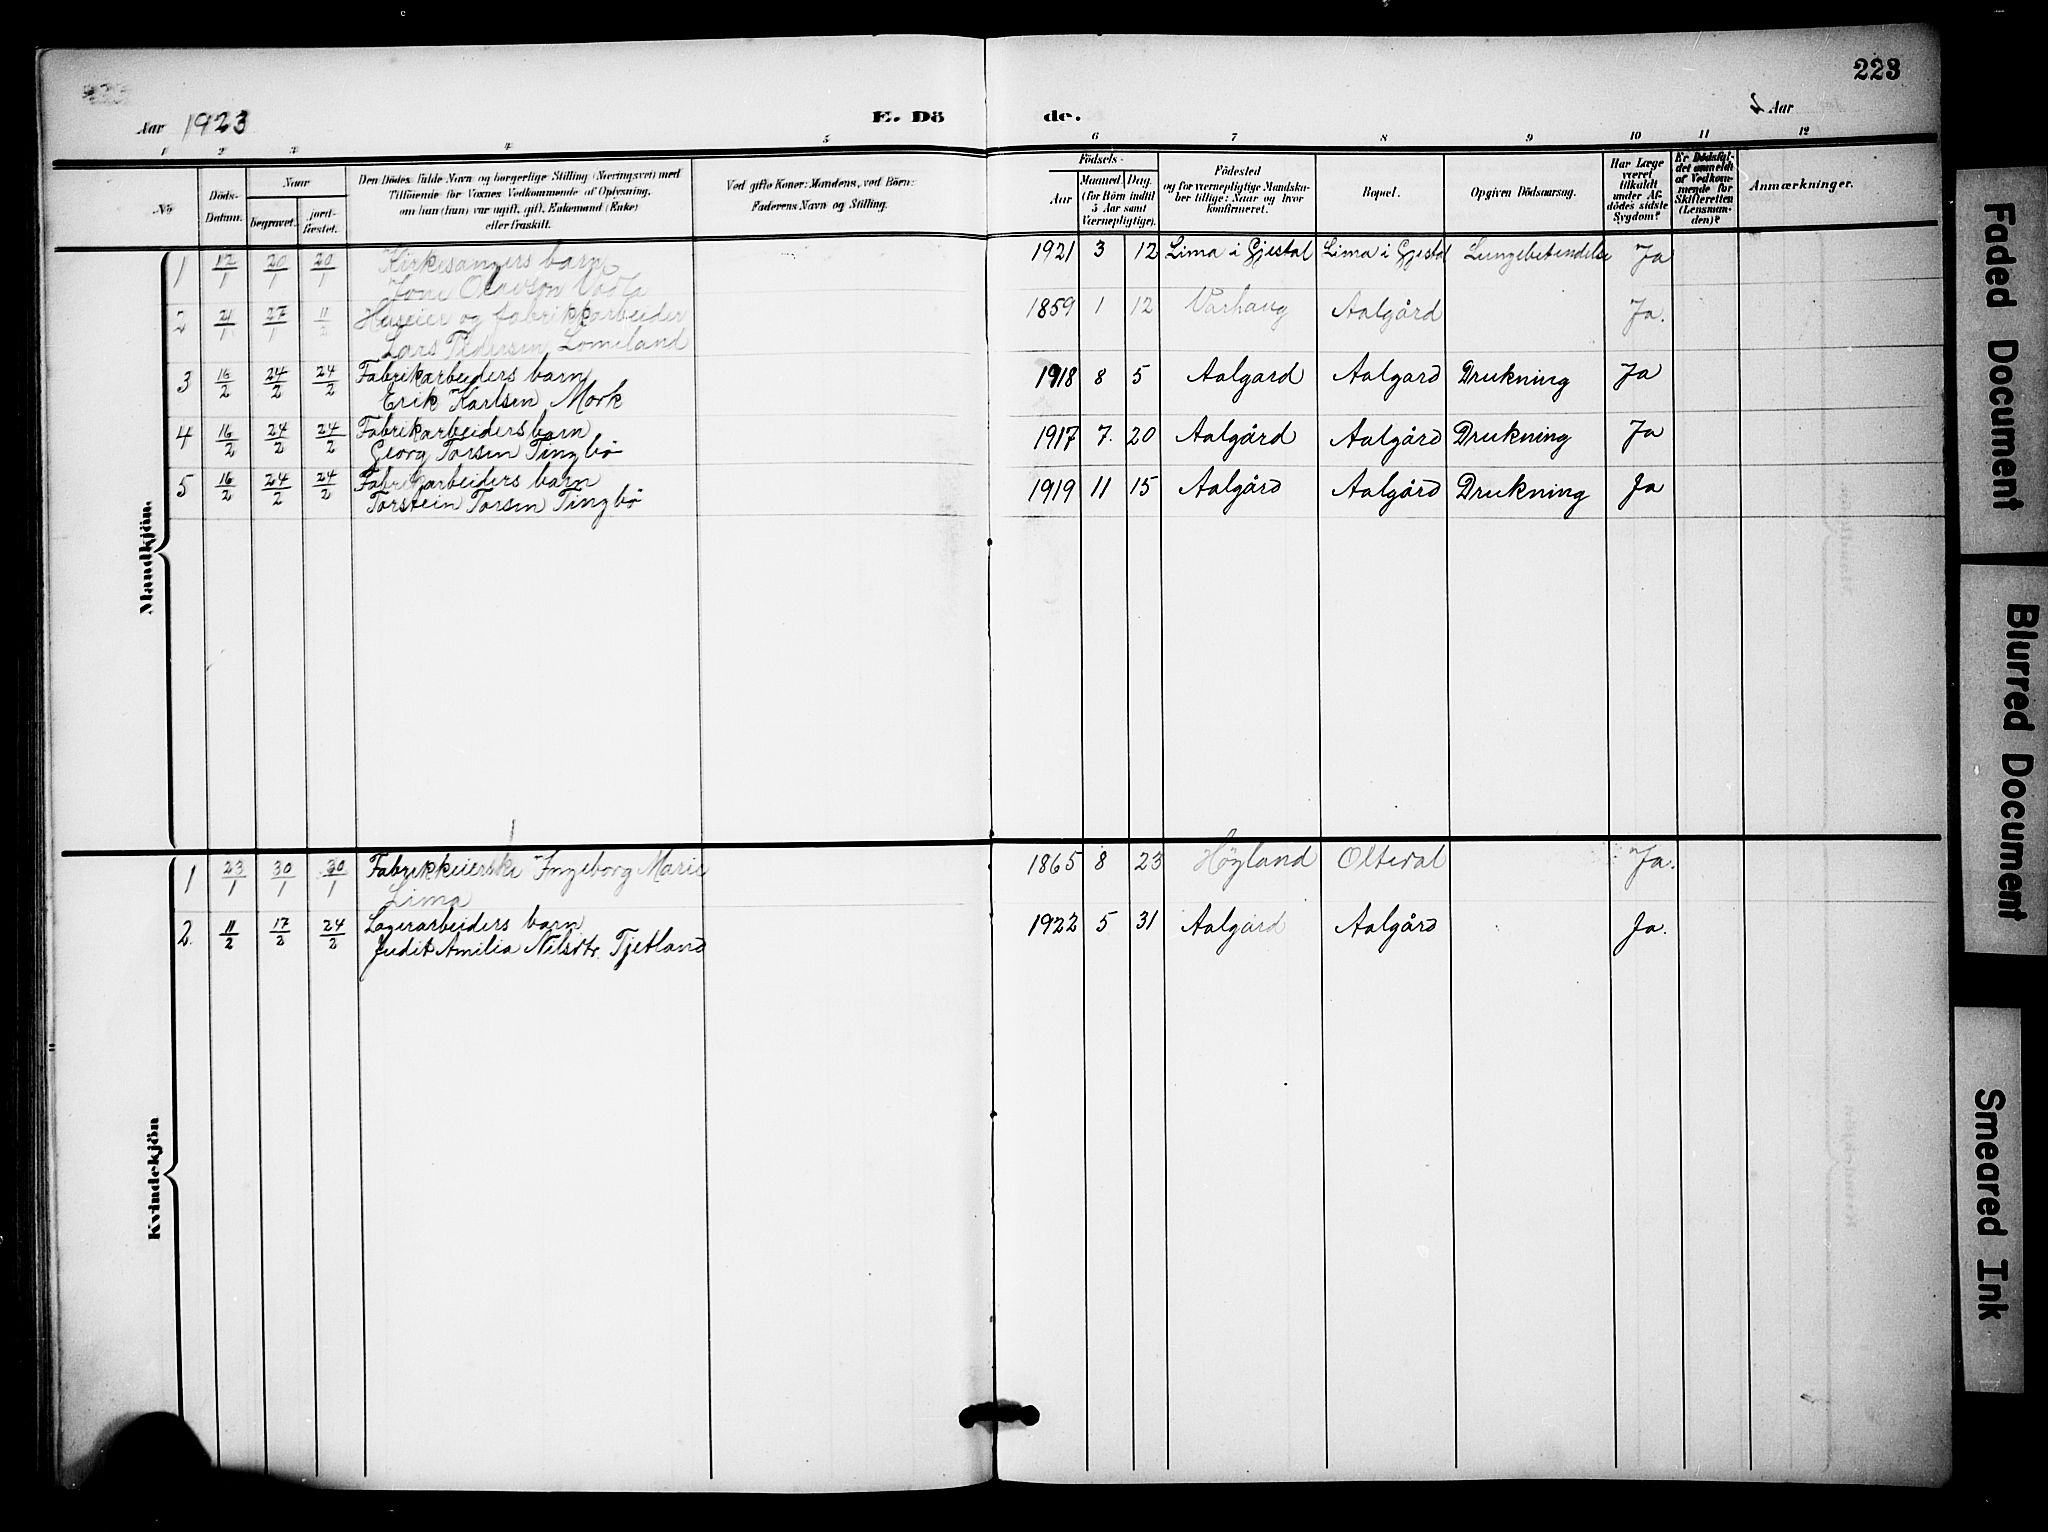 223
Aar 1923 E. Dö de. Aar
1 2 3 4 5 6 7 8 9 10 11 12
No
Döds-Datum.
Naar
begravet.
jord-fæstet.
Den Dödes fulde Navn og borgerlige Stilling (Næringsvei) med
Tilföiende for Voxnes Vedkommende af Oplysning,
om han (hun) var ugift, gift, Enkemand (Enke)
eller fraskilt.
Ved gifte Koner: Mandens, ved Börn:
Faderens Navn og Stilling.
Födsels-
Aar
Maaned Dag
(for Börn indtil
5 Aar samt
Værnepligtige).
Födested
og for værnepligtige Mandska-
ber tillige: Naar og hvor
konfirmeret.
Bopæl.
Opgiven Dödsaarsag.
Har Læge
været
tilkaldt
under Af-
dödes sidste
Sygdom?
Er Dödsfal-
det anmeldt
af Vedkom-
mende for
Skifteretten
(Lensman-
den)?
Anmærkninger.
Mandkjön.
1 12/1 20/1 20/1 Kirkesangers barn 1921 3 12 Lima i Gjestal Lima i Gjestal Lungebetendelse Ja
Tone Olavson
2 21/1 27/1 11/2 Huseier og fabrikkarbeider 1859 1 12 Varhaug Aalgård Ja.
Lars Pedersen Lomeland
3 16/2 24/2 24/2 Fabrikarbeiders barn 1918 8 5 Aalgard Aalgard Drukning Ja
Erik Karlsen Mork
4 16/2 24/2 24/2 Fabrikarbeiders barn 1917 7. 20 Aalgård Aalgård Drukning Ja
Georg Torsen Tingbø
5 16/2 24/2 24/2 Fabrikarbeiders barn 1919 11 15 Aalgård Aalgård Drukning Ja
Torstein Torsen Tingbø
Kvindekjön
1 23/1 30/1 30/1 Fabrikkeierske Ingeborg Marie 1865 8 23 Høyland Oltedal Ja.
Lima
2. 11/2 17/2 24/2 Lagerarbeiders barn 1922 5 31 Aalgård Aalgård Ja.
Judit Amilia Nilsdtr. Tjetland
Faded Document
Blurred Document
Smeared Ink